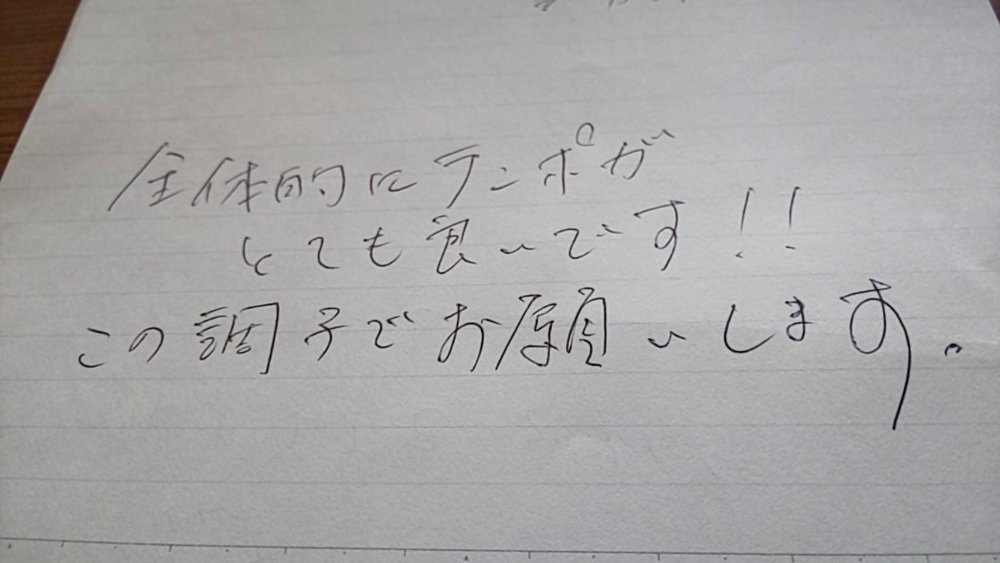 全体的にテンポが
とても良いです!!
この調子でお願いします。